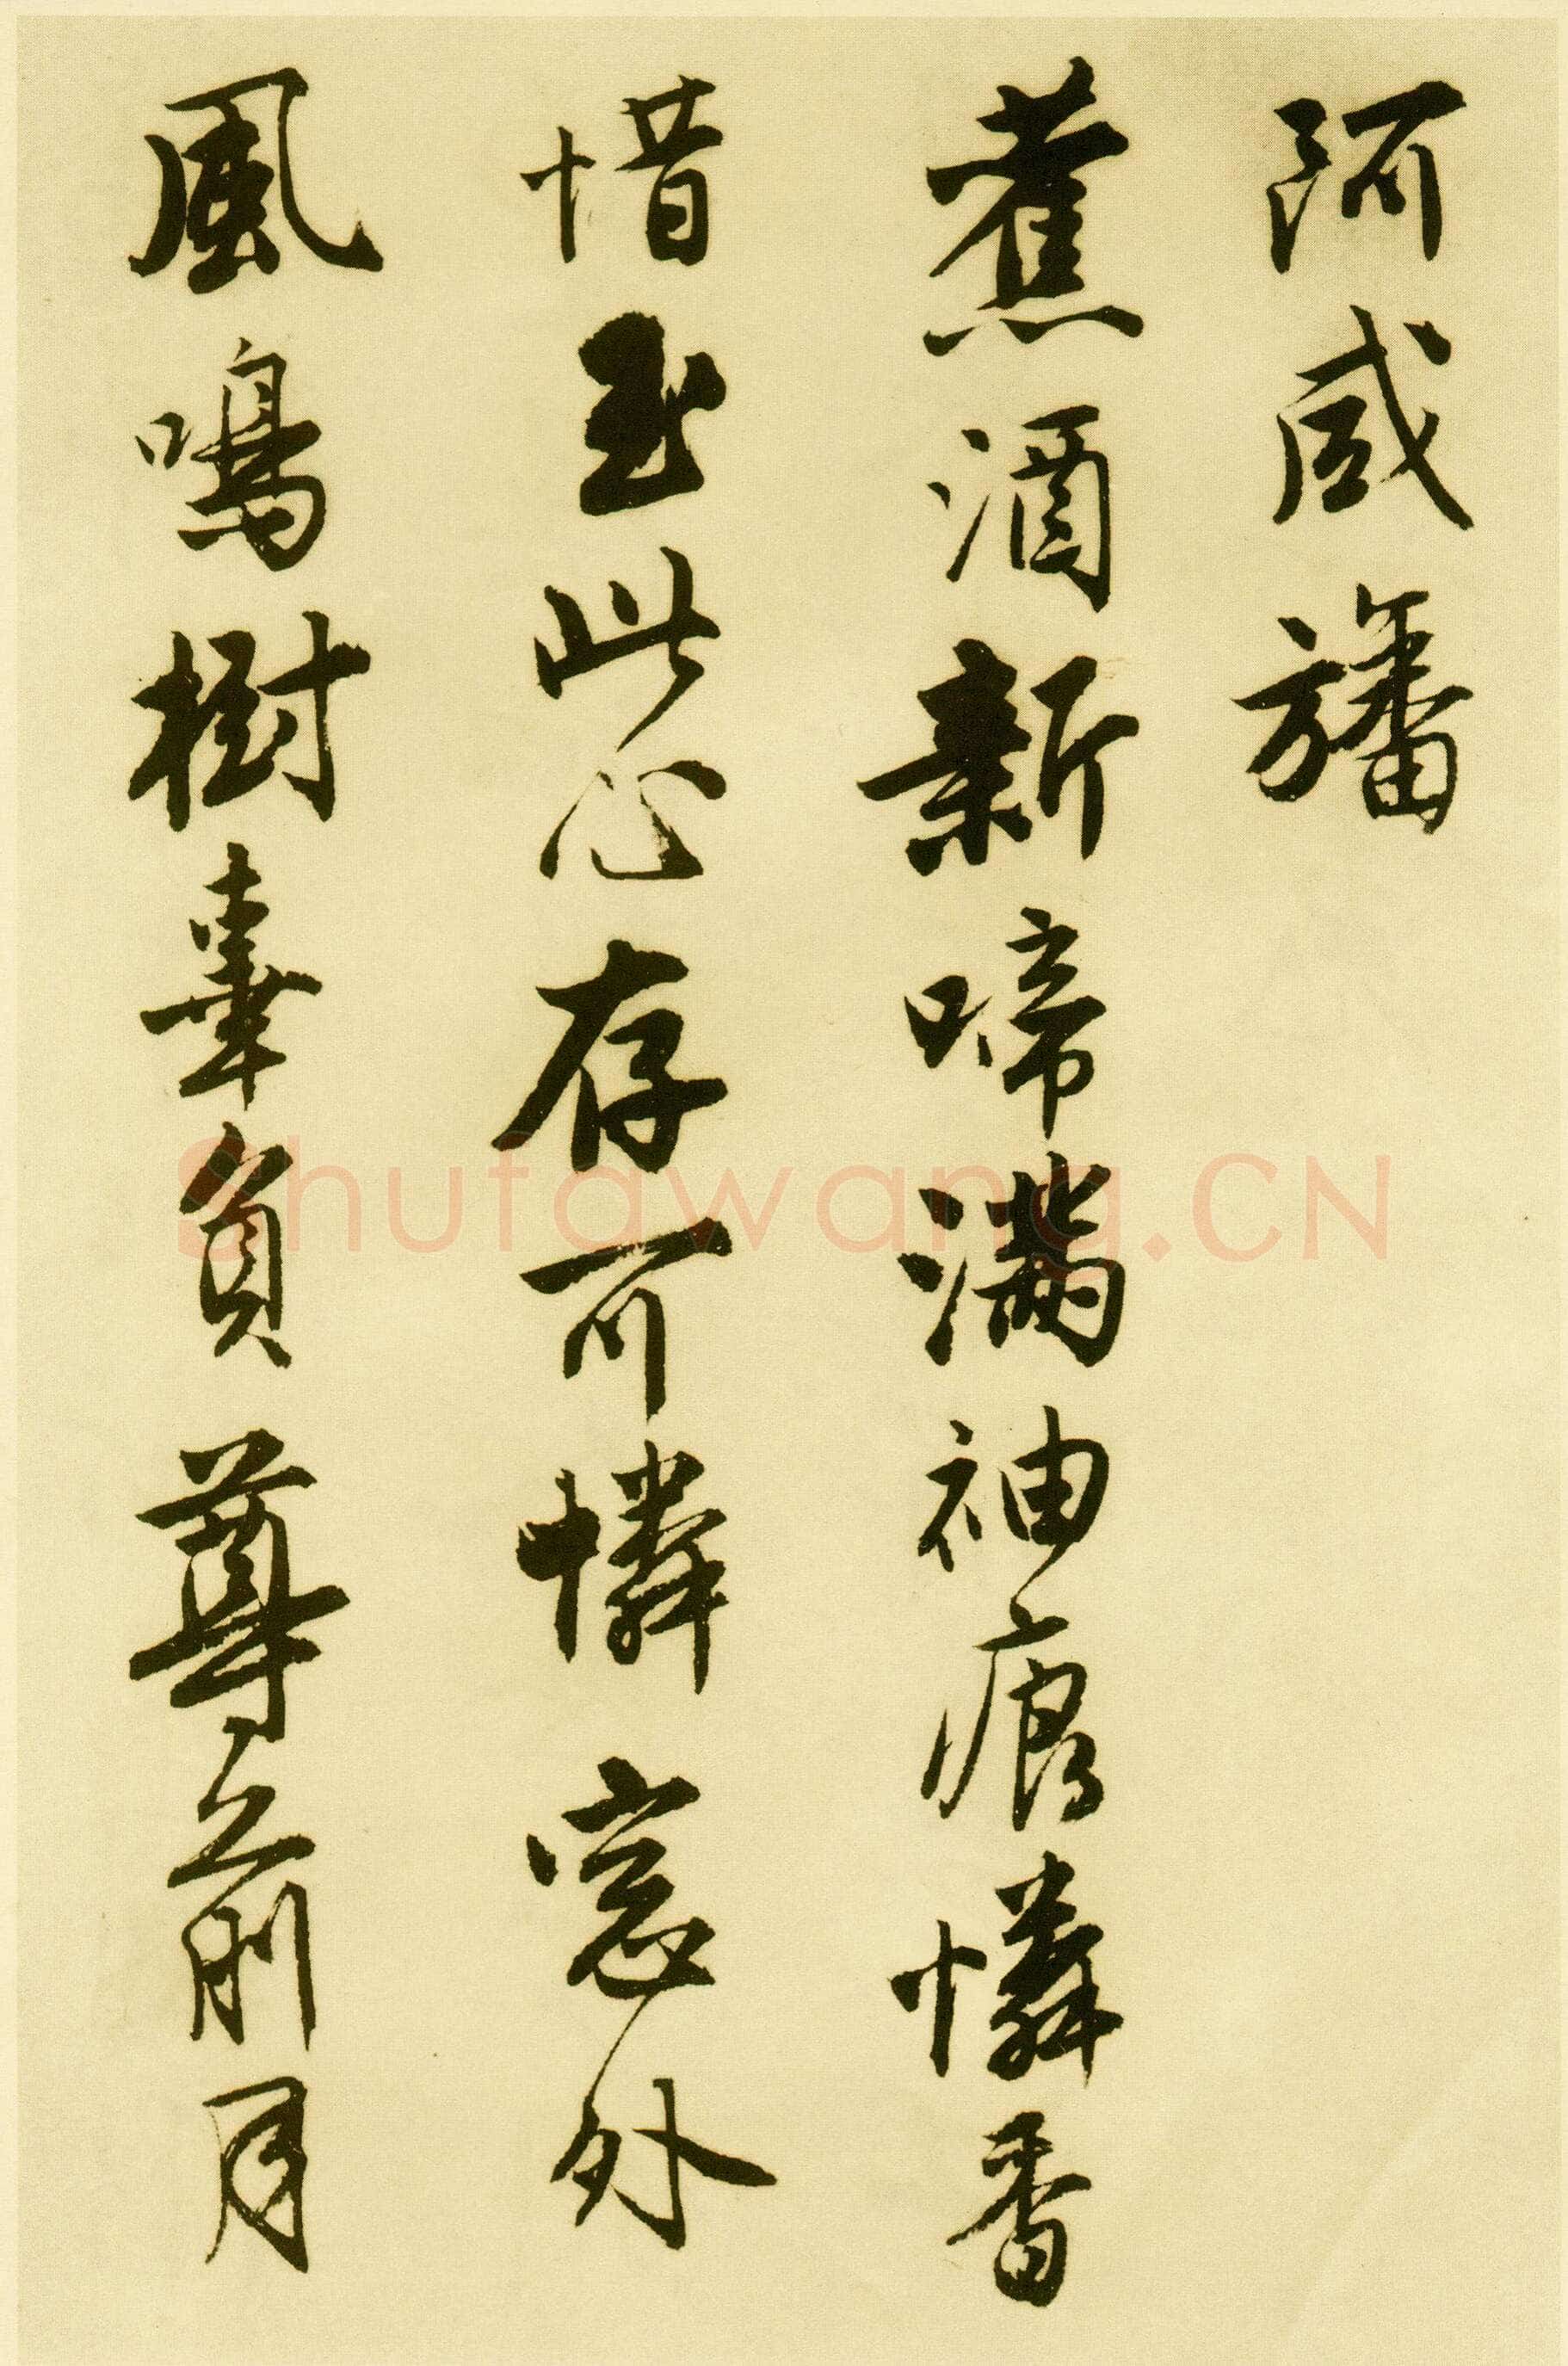 阿咸旛
蕉酒新啼滿袖痕憐香
惜玉此心存可憐窓外
風鳴樹辜負尊前月
Shufawang.CN